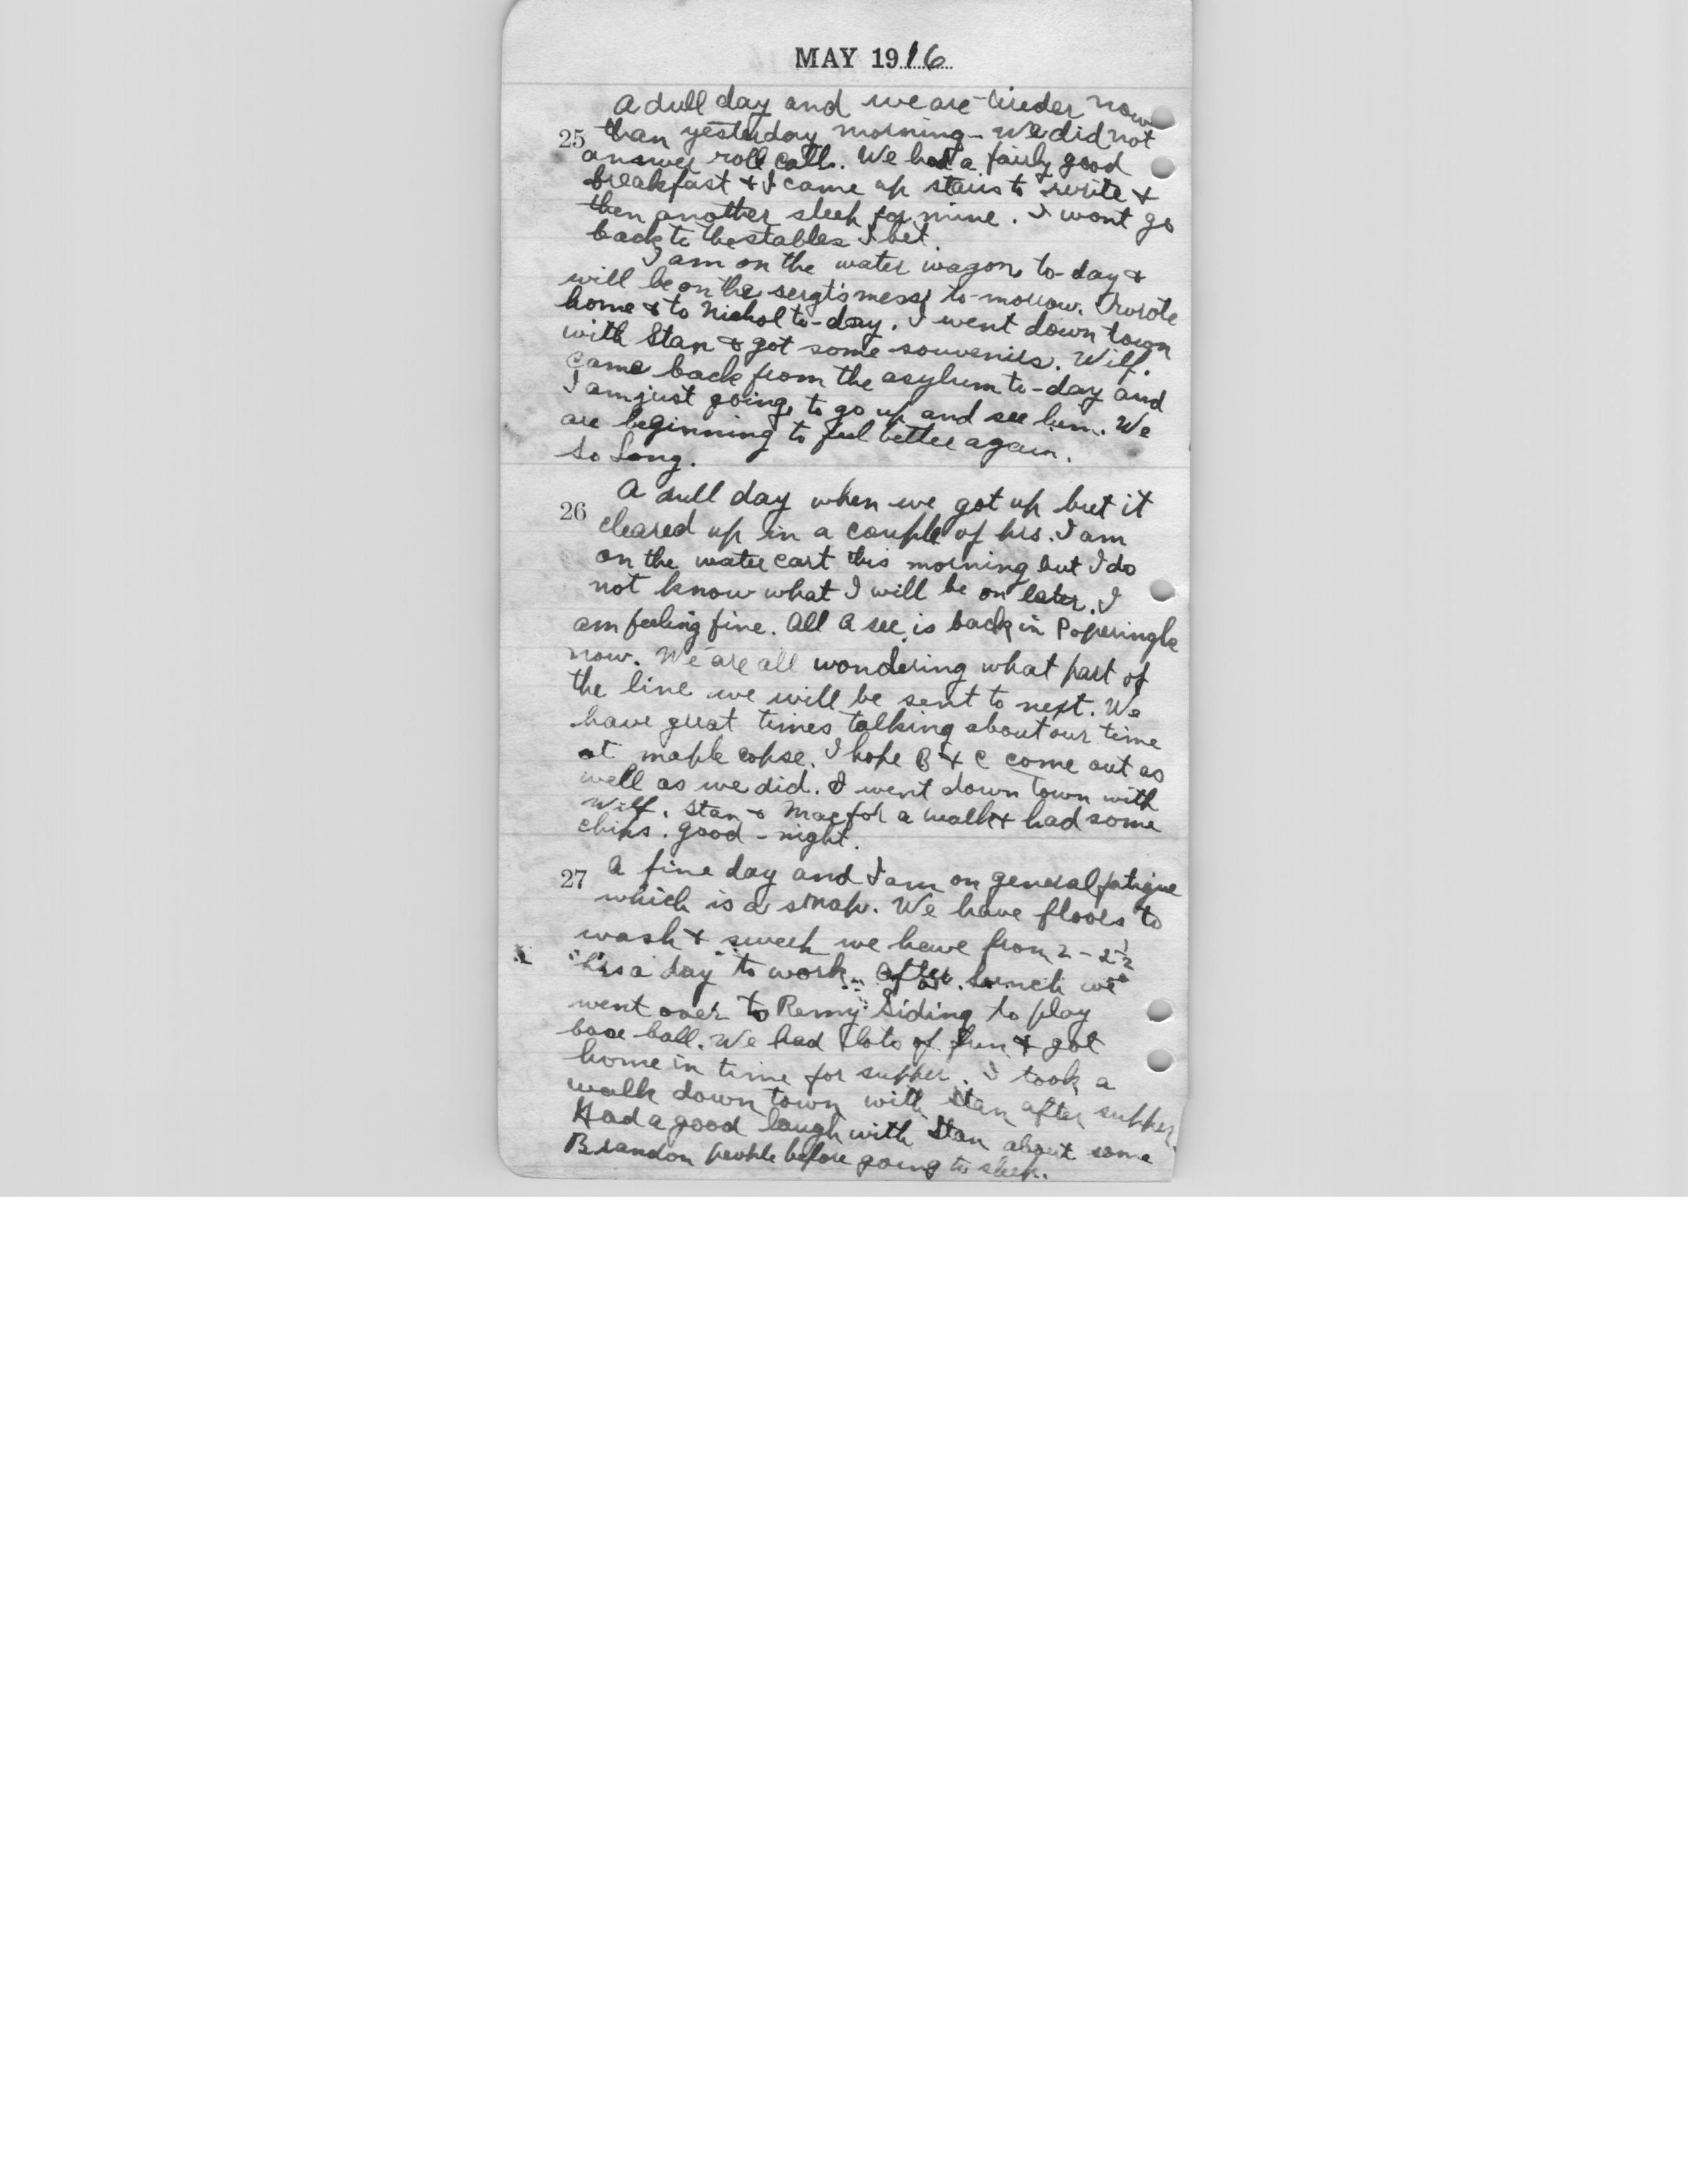 MAY 1916
A dull day and we are tireder now
25 than yesterday morning - We did not
answer roll call. We had a fairly good
breakfast & I came up stairs to write &
then another sleep for mine. I wont go
back to the stables I bet.
I am on the water wagon to-day &
will be on the sergt's mess to-morrow. I wrote
home & to Nichol to-day. I went down town
with Stan & got some souvenirs. Wilf.
came back from the asylum to-day and
I am just going to go up and see him. We
are beginning to feel better again.
So Long.
A dull day when we got up but it
26 cleared up in a couple of hrs. I am
on the water cart this morning but I do
not know what I will be on later. I
am feeling fine. All A sec. is back in Poperinghe
now. We are all wondering what part of
the line we will be sent to next. We
have great times talking about our time
at maple copse. I hope B & C come out as
well as we did. I went down town with
Wilf. Stan & Mac for a walk & had some
chips. Good-night.
A fine day and I am on general fatigue
27 which is a snap. We have floors to
wash & sweep we have from 2 - 2½
hrs a day to work. After lunch we
went over to Remy Siding to play
base ball. We had lots of fun & got
home in time for supper. I took a
walk down town with Stan after supper.
Had a good laugh with Stan about some
Brandon people before going to sleep.